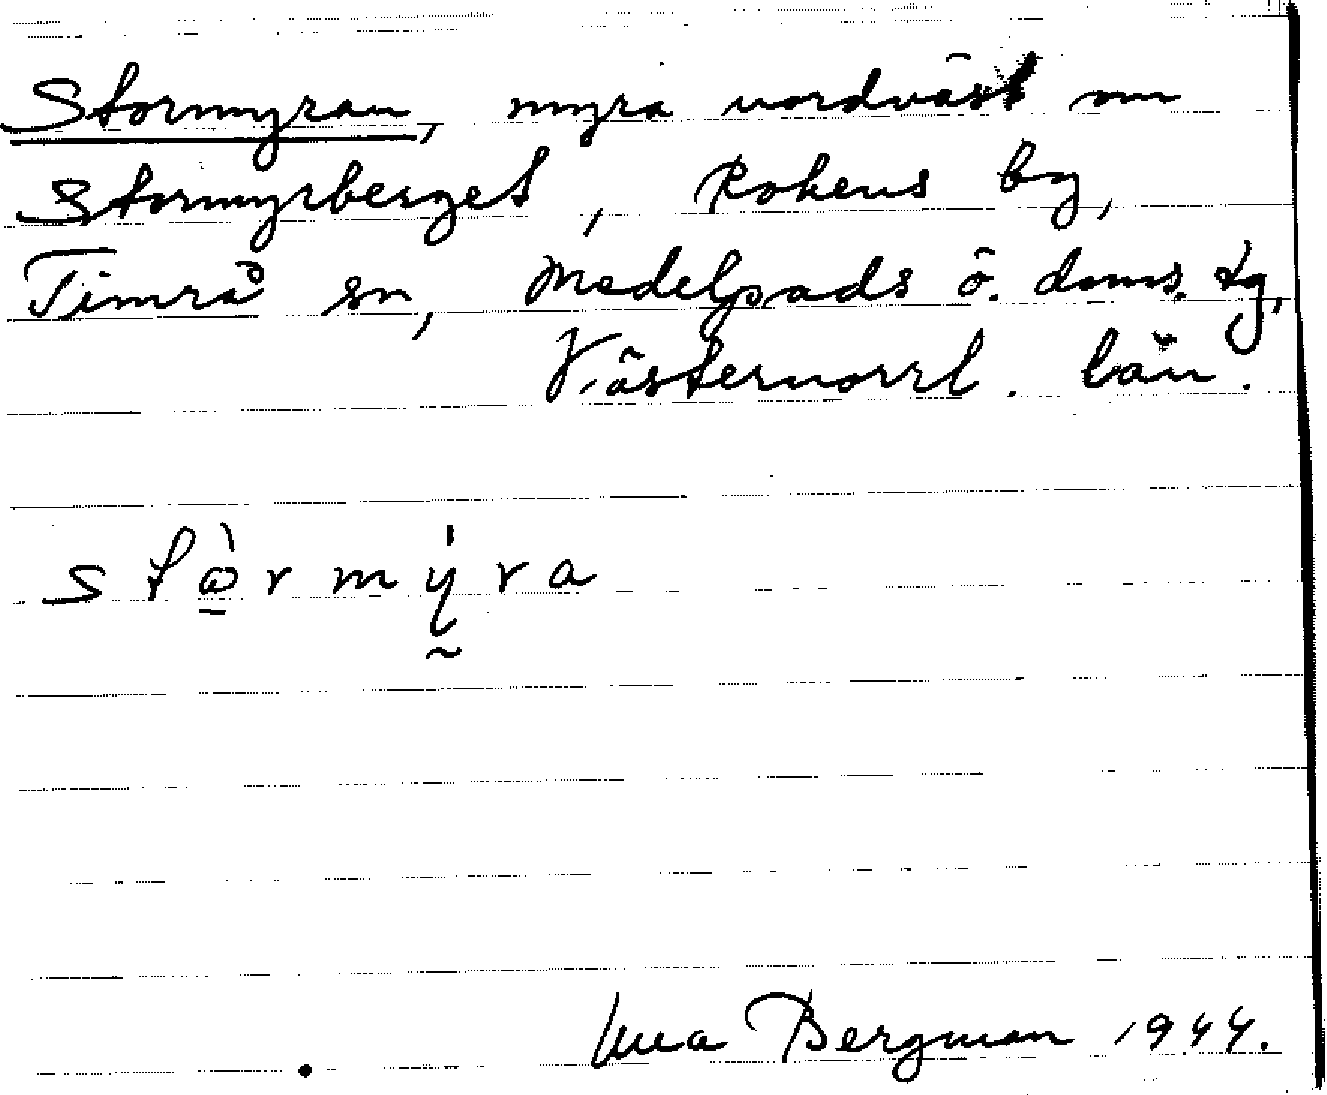 Stormyran, myra nordväst om
Stormyrberget, Rokens by,
Timrå sn, Medelpads ö. doms. tg,
Västernorrl. län.
stòrmýra
Bergman 1944.